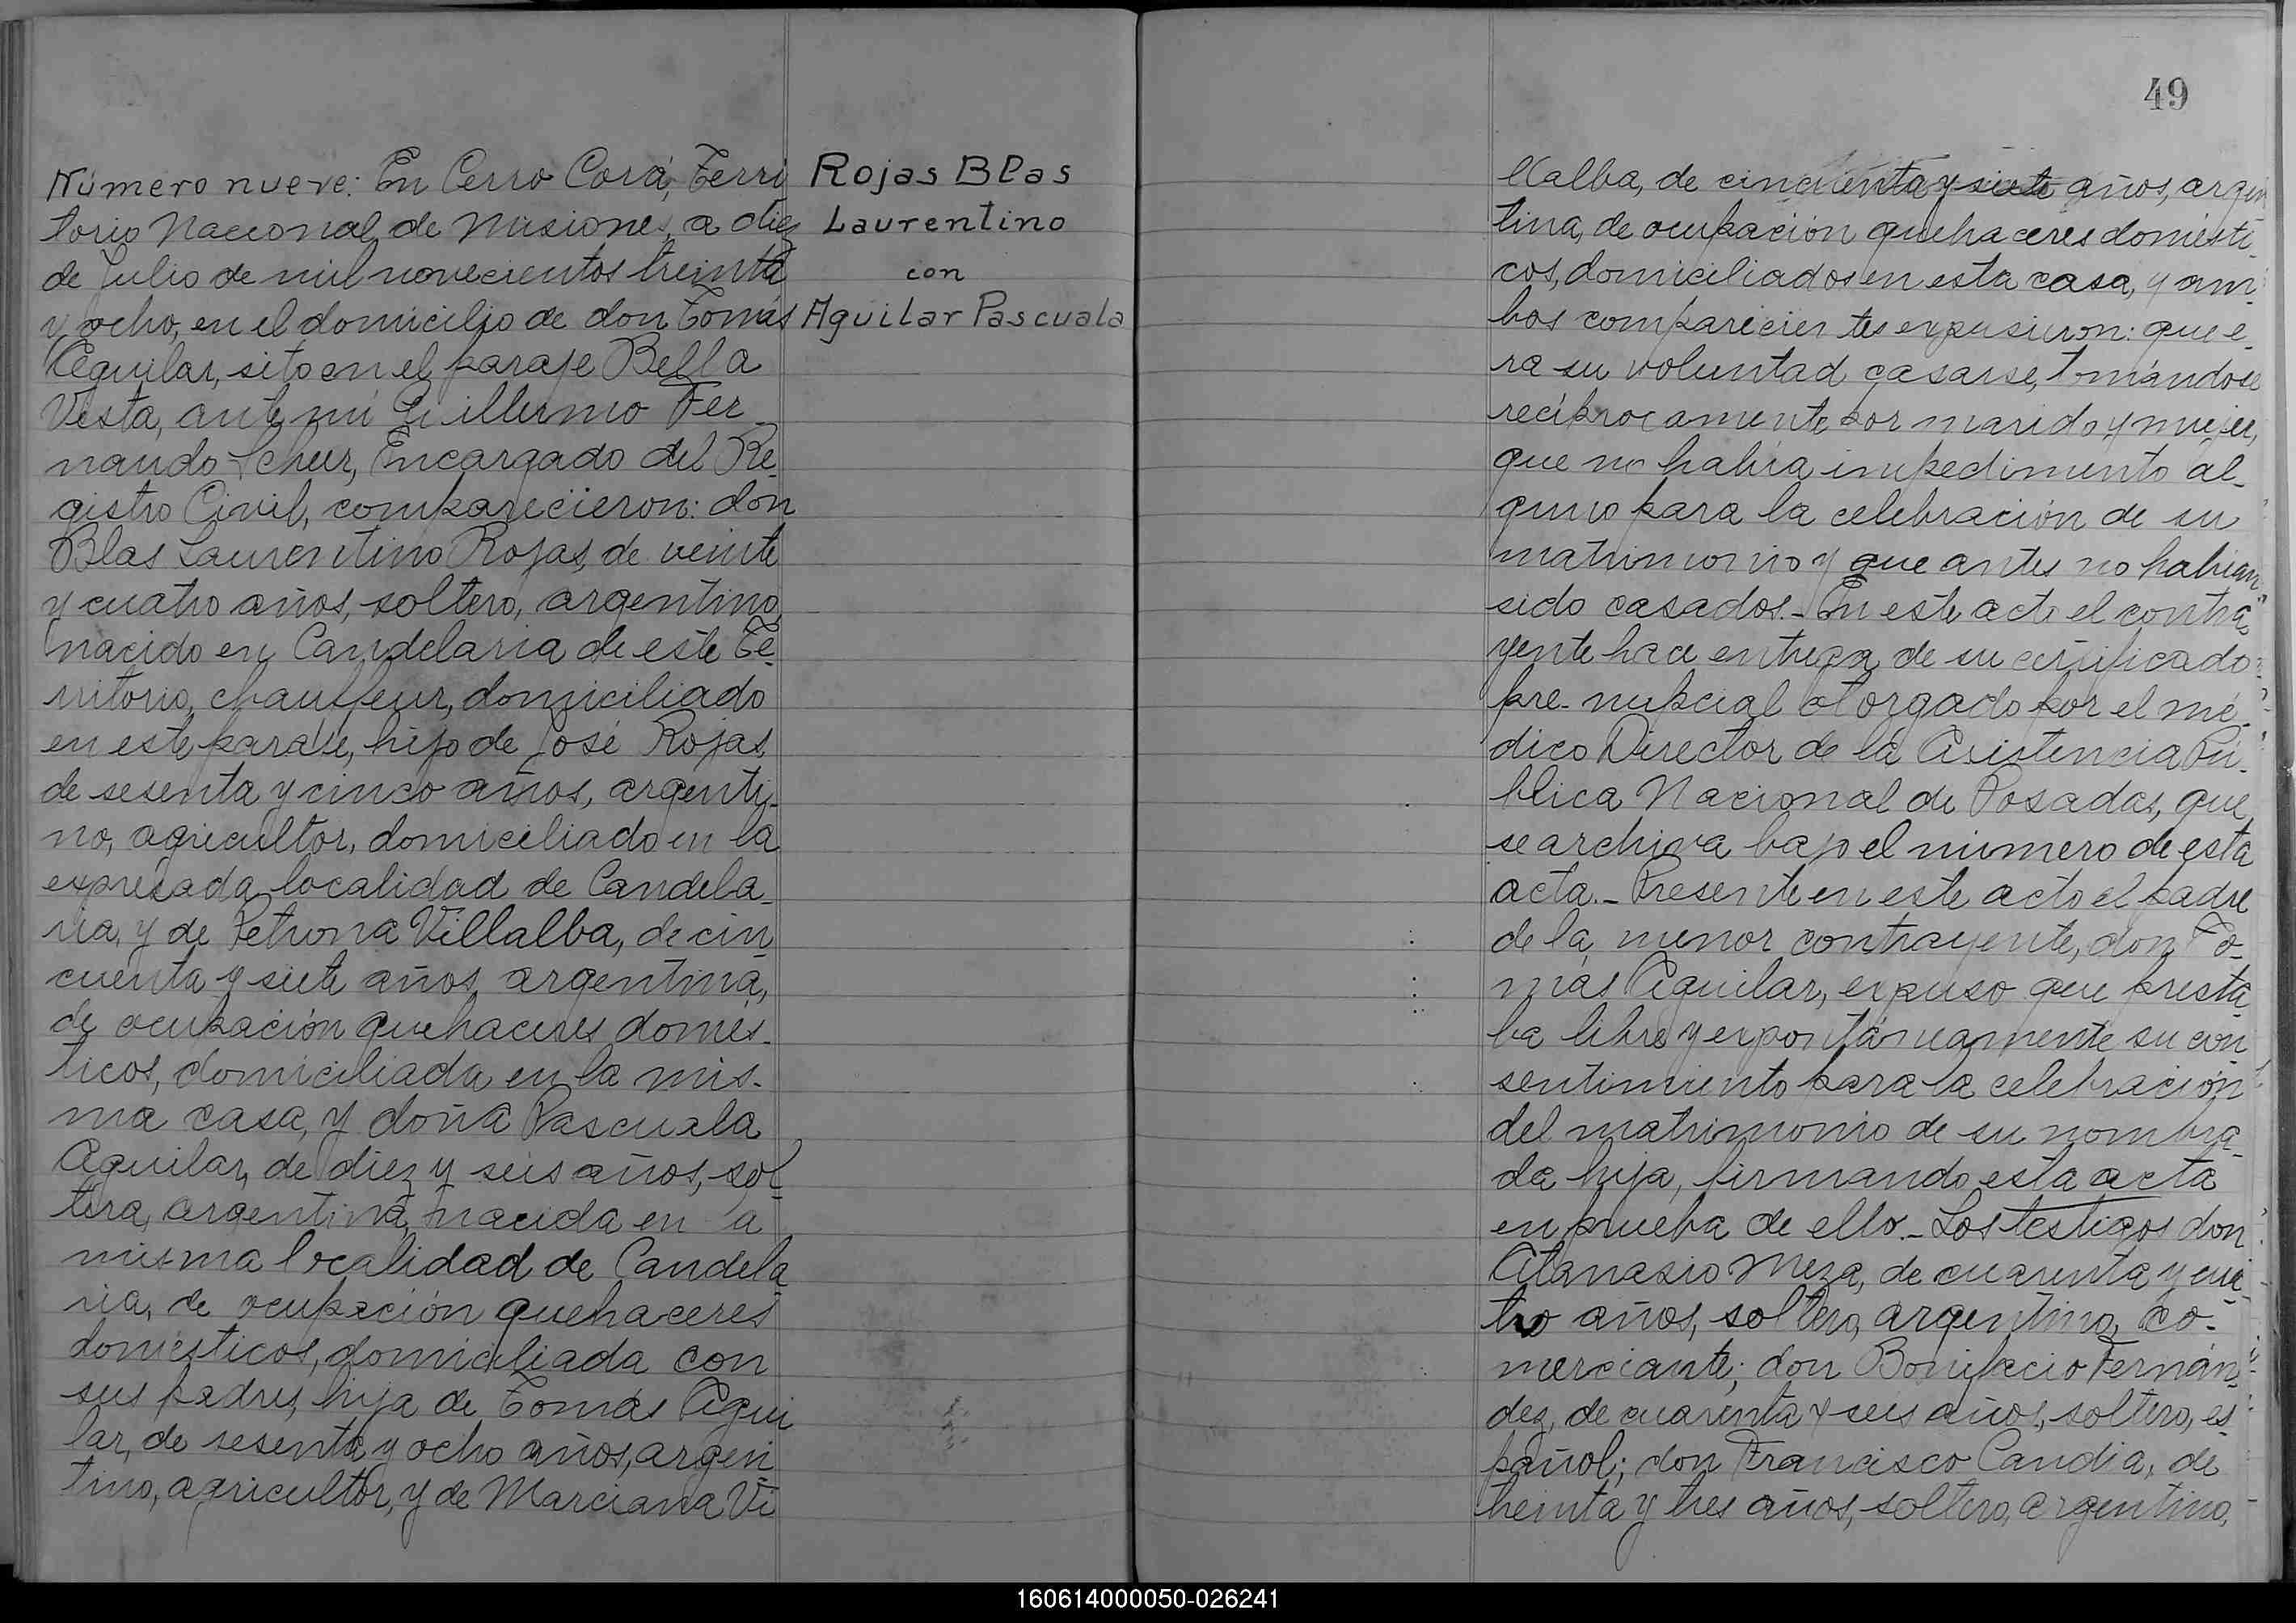 Número nueve: En Cerro Corá, Terri
torio Nacional de Misiones, a diez
de Julio de mil novecientos treinta
y ocho, en el domicilio de don Tomás
Aguilar, sito en el paraje Bella
Vista, ante mí Guillermo Fer-
nando Scheer, Encargado del Re-
gistro Civil, comparecieron: don
Blas Laurentino Rojas, de veinte
y cuatro años, soltero, argentino,
nacido en Candelaria de este Te-
rritorio, chauffeur, domiciliado
en este paraje, hijo de José Rojas,
de sesenta y cinco años, argenti-
no, agricultor, domiciliado en la
expresada localidad de Candela-
ria, y de Petrona Villalba, de cin-
cuenta y siete años, argentina,
de ocupación quehaceres domés-
ticos, domiciliada en la mis-
ma casa, y doña Pascuala
Aguilar, de diez y seis años, sol-
tera, argentina, nacida en la
misma localidad de Candela-
ria, de ocupación quehaceres
domésticos, domiciliada con
sus padres, hija de Tomás Agui
lar, de sesenta y ocho años, argen-
tino, agricultor, y de Marciana Vi
Rojas Blas
Laurentino
con
Aguilar Pascuala
49
llalba, de cincuenta y siete años, argen
tina, de ocupación quehaceres domésti-
cos, domiciliados en esta casa, y am-
bos comparecientes expusieron: que e-
ra su voluntad casarse, tomándose
recíprocamente por marido y mujer,
que no había impedimento al-
guno para la celebración de su
matrimonio y que antes no habían
sido casados.- En este acto el contra-
yente hace entrega de su certificado
pre-nupcial otorgado por el mé-
dico Director de la Asistencia Pú-
blica Nacional de Posadas, que
se archiva bajo el número de esta
acta.- Presente en este acto el padre
de la menor contrayente, don To-
más Aguilar, expuso que presta-
ba libre y expontáneamente su con
sentimiento para la celebración
del matrimonio de su nombra-
da hija, firmando esta acta
en prueba de ello.- Los testigos don
Atanasio Meza, de cuarenta y cua-
tro años, soltero, argentino, co-
merciante; don Bonifacio Fernán-
dez, de cuarenta y seis años, soltero, es-
pañol; don Francisco Candia, de
treinta y tres años, soltero, argentino,
160614000050-026241